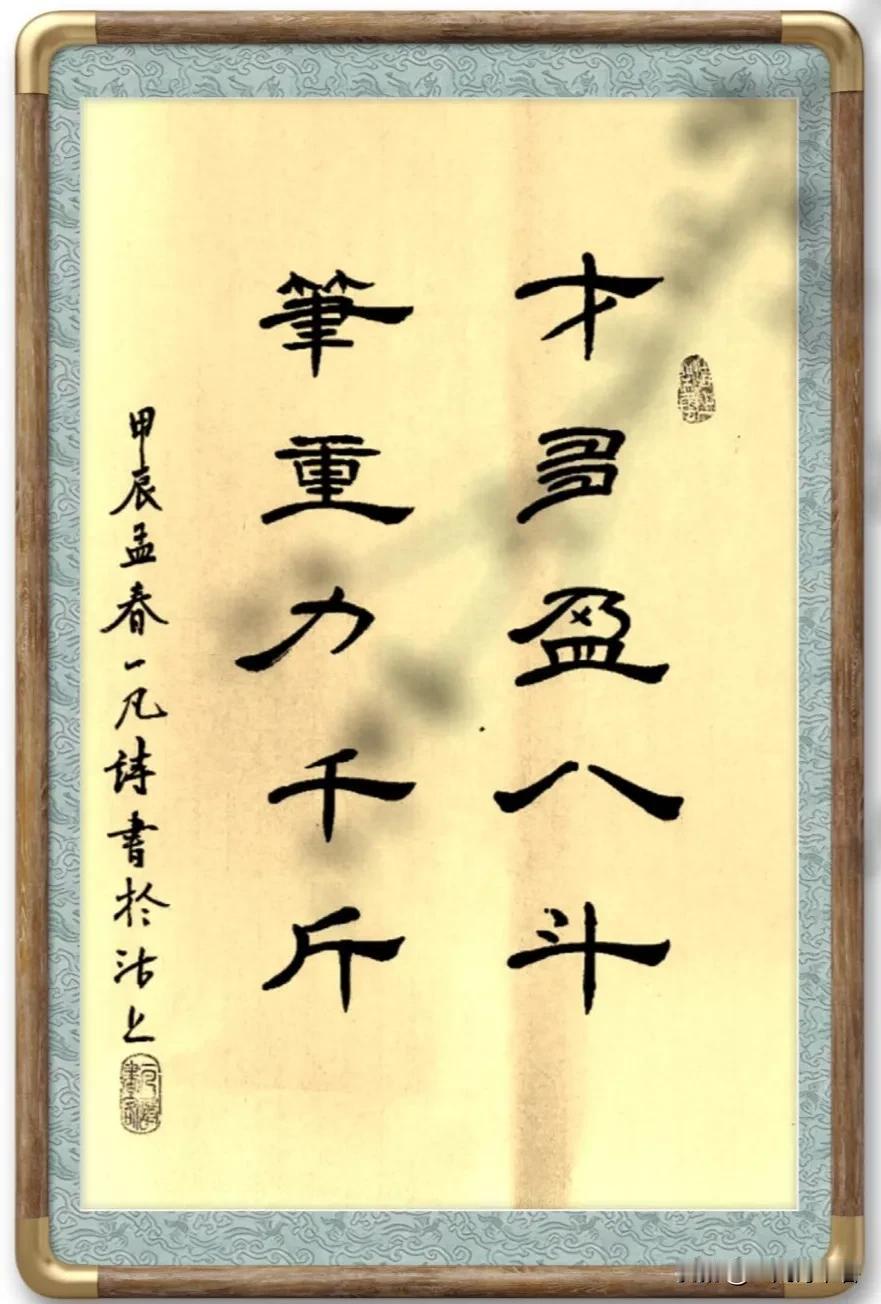 才多盈八斗
筆重力千斤
甲辰孟春一凡詩書於沽上